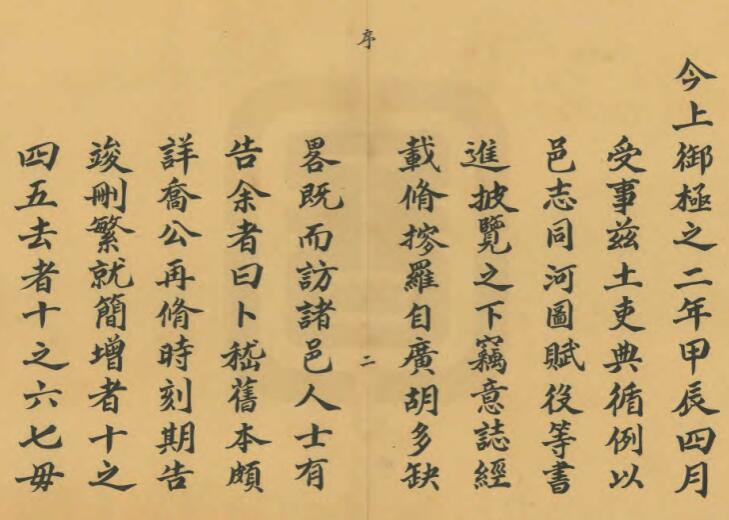 今上御極之二年甲辰四月
受事兹土吏典循例以
邑志同河圖賦役等書
進披覽之下竊意誌經
載脩搜羅自廣胡多缺
序
二
畧既而訪諸邑人士有
告余者曰卜嵇舊本頗
詳喬公再脩時刻期告
竣刪繁就簡增者十之
四五去者十之六七毋